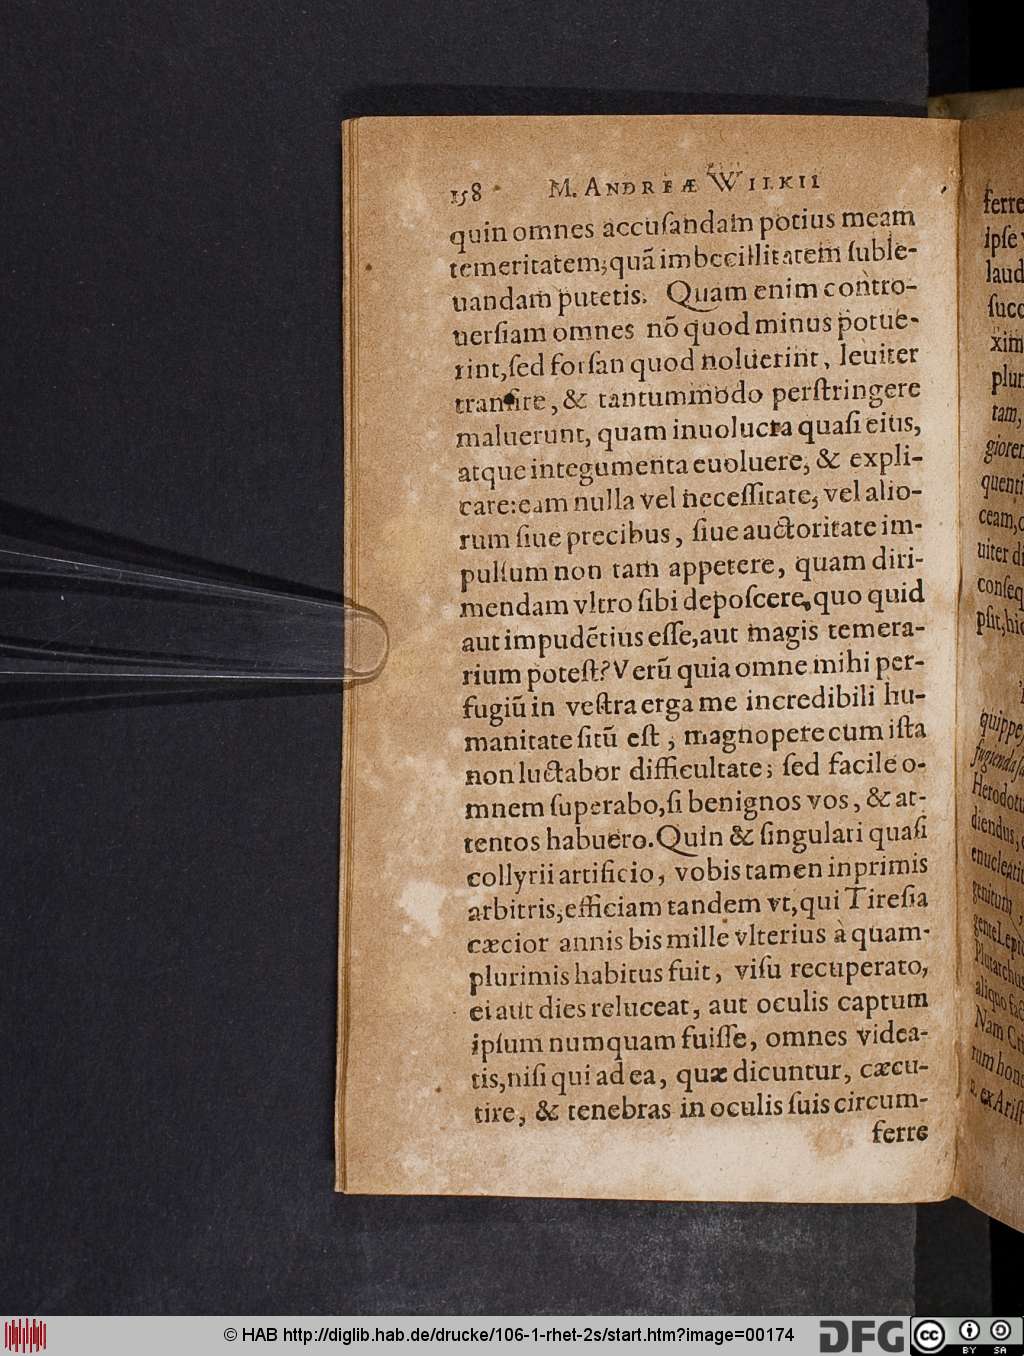 158 M. ANDREÆ WILKII
quin omnes accuſandam potius meam
temeritatem; quã imbecillitatem ſuble-
uandam putetis. Quam enim contro-
uerſiam omnes nõ quod minus potue-
rint, ſed forſan quod noluerint, leuiter
tranſire, & tantummodo perſtringere
maluerunt, quam inuolucra quaſi eius,
atque integumenta euoluere, & expli-
care: eam nulla vel neceſſitate, vel alio-
rum ſiue precibus, ſiue auctoritate im-
pulſum non tam appetere, quam diri-
mendam vltro ſibi depoſcere, quo quid
aut impudẽtius eſſe, aut magis temera-
rium poteſt? Verũ quia omne mihi per-
fugiũ in veſtra erga me incredibili hu-
manitate ſitũ eſt, magnopere cum iſta
non luctabor difficultate; ſed facile o-
mnem ſuperabo, ſi benignos vos, & at-
tentos habuero. Quin & ſingulari quaſi
collyrii artificio, vobis tamen inprimis
arbitris, efficiam tandem vt, qui Tireſia
cæcior annis bis mille vlterius à quam-
plurimis habitus fuit, viſu recuperato,
ei aut dies reluceat, aut oculis captum
ipſum numquam fuiſſe, omnes videa-
tis, niſi qui ad ea, quæ dicuntur, cæcu-
tire, & tenebras in oculis ſuis circum-
ferre
ferre
ipſe
laud
ſucc
xim
plur
tam,
giorem
quenti
ceam,
uiter di
conſeq
pſit, hic
quippe
fugienda
Herodotu
diendus,
enucleatiu
genitum,
gente Lepid
Plutarchus
aliquo fac
Nam Cri
rum hono
ex Ariſt
© HAB http://diglib.hab.de/drucke/106-1-rhet-2s/start.htm?image=00174
DFG
cc
BY SA